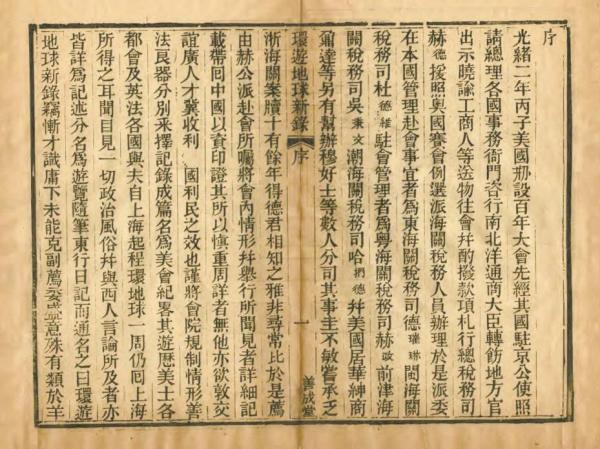 序
光緒二年丙子美國刱設百年大會先經其國駐京公使照
請總理各國事務衙門咨行南北洋通商大臣轉飭地方官
出示曉諭工商人等送物往會并酌撥款項札行總稅務司
赫德援照奧國賽會例選派海關稅務人員辦理於是派委
在本國管理赴會事宜者為東海關稅務司德璀琳閩海關
稅務司杜德維駐會管理者為粵海關稅務司赫政前津海
關稅務司吳秉文潮海關稅務司哈捫德并美國居華紳商
爾達等另有幫辦穆好士等數人分司其事圭不敏嘗承乏
環遊地球新錄 序 一 善成堂
浙海關案牘十有餘年得德君相知之雅非尋常比於是薦
由赫公派赴會所囑將會內情形并舉行所聞見者詳細記
載帶回中國以資印證其所以慎重周詳者無他亦欲敦交
誼廣人才冀收利 國利民之效也謹將會院規制情形善
法良器分別采擇記錄成篇名為美會紀畧其遊歷美士各
都會及英法各國與夫自上海起程環地球一周仍回上海
所得之耳聞目見一切政治風俗并與西人言論所及者亦
皆詳為記述分名為遊覽隨筆東行日記而通名之曰環遊
地球新錄竊慚才識庸下未能克副薦委盛意殊有類於羊